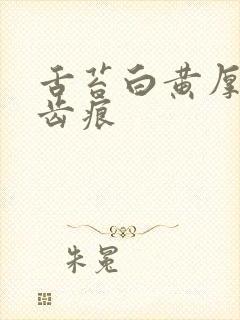 舌苔白黄厚
齿痕
朱冕